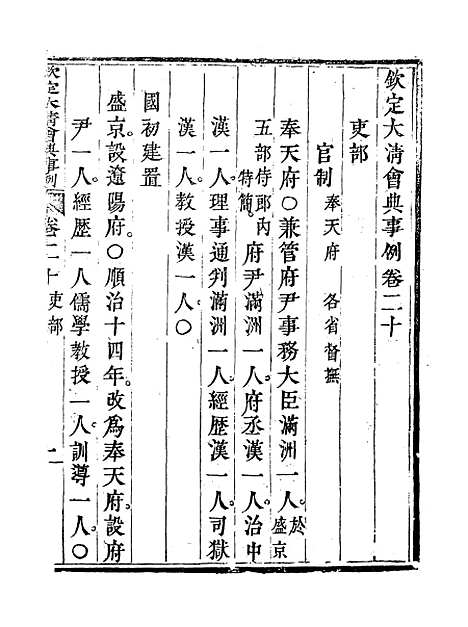 欽定大清會典事例卷二十
吏部
官制 奉天府 各省督撫
奉天府○兼管府尹事務大臣滿洲一人。於盛京
五部侍郎內特簡。府尹滿洲一人。府丞漢一人。治中
漢一人。理事通判滿洲一人。經歷漢一人。司獄
漢一人。教授漢一人○
國初建置
盛京。設遼陽府。○順治十四年。改爲奉天府。設府
尹一人。經歷一人。儒學教授一人。訓導一人。○
欽定大清會典事例 卷二十 吏部 一